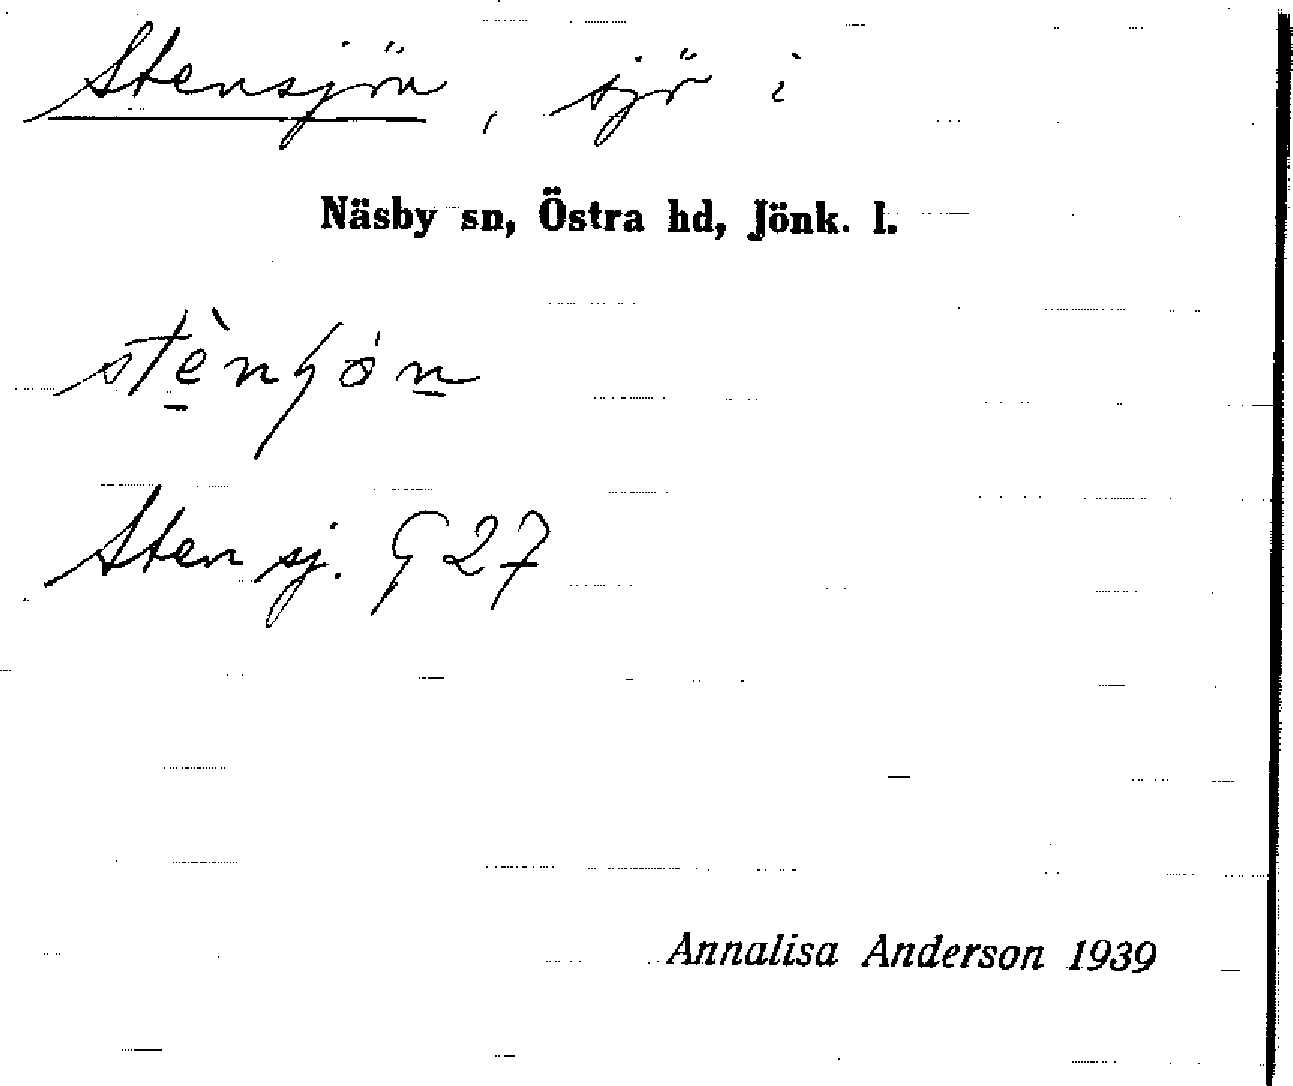 Stensjön, sjö i
Näsby sn, Östra hd, Jönk. l.
Stensj. G 27
Annalisa Anderson 1939